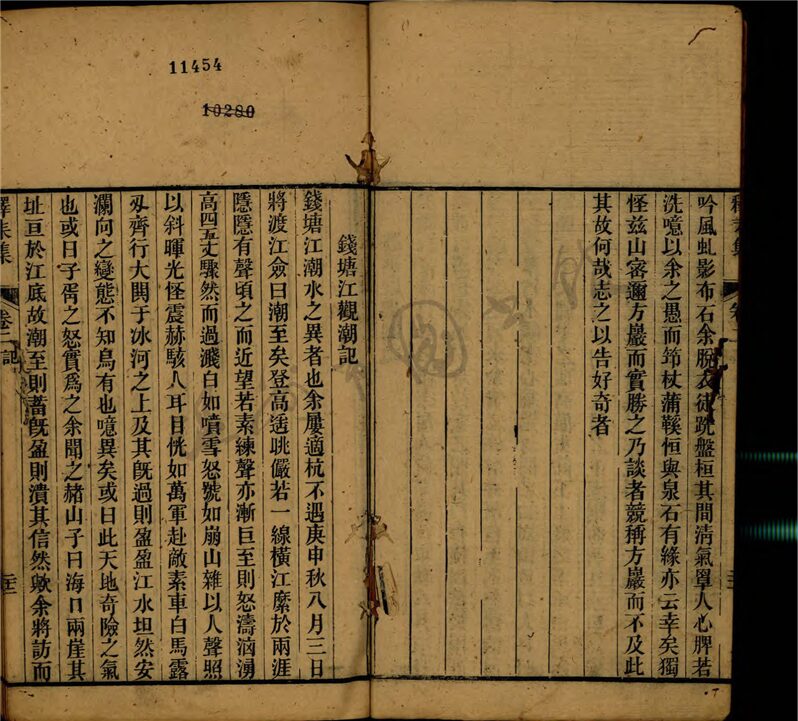 11454
10280
吟風虬影布石余脫衣徒跣盤桓其間清氣單人心脾若
洗噫以余之愚而笻杖蒲鞵恒與泉石有緣亦云幸矣獨
怪兹山密邇方巖而實勝之乃談者競稱方巖而不及此
其故何哉志之以告好奇者
錢塘江觀潮記
錢塘江潮水之異者也余屢適杭不遇庚申秋八月三日
將渡江僉曰潮至矣登高遥眺儼若一線橫江縻於兩涯
隱隱有聲頃之而近望若素練聲亦漸巨至則怒濤洶湧
高四五丈驟然而過濺白如噴雪怒號如崩山雜以人聲照
以斜暉光怪震赫駭人耳目恍如萬軍赴敵素車白馬露
刄齊行大閱于冰河之上及其旣過則盈盈江水坦然安
瀾向之變態不知烏有也噫異矣或曰此天地奇險之氣
也或曰子胥之怒實爲之余聞之赭山子曰海口兩崖其
址亘於江底故潮至則蓄旣盈則潰其信然歟余將訪而
集
卷二 記